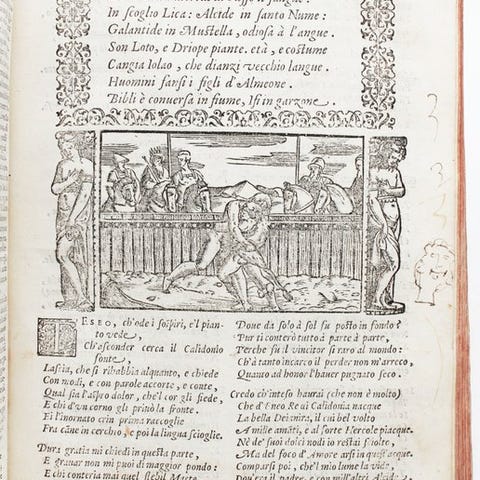 In scoglio Lica: Alcide in santo Nume:
Galantide in Mustella, odiosa à l'angue.
Son Loto, e Driope piante. età, e costume
Cangia Iolao, che dianzi vecchio langue.
Huomini fansi i figli d'Almeone.
Bibli è conuersa in fiume, Isi in garzone.
3
3
TESEO, ch'ode i sospiri, e'l pian-
to vede,
Ch'asconder cerca il Calidonio
fonte,
Lascia, che si rihabbia alquanto, e chiede
Con modi, e con parole accorte, e conte,
Qual sia l'aspro dolor, che'l cor gli siede,
E chi d'un corno gli priuò la fronte.
Ei l'inornato crin prima raccoglie
Fra cãne in cerchio, e poi la lingua scioglie.
Dura gratia mi chiedi in questa parte,
E grauar non mi puoi di maggior pondo:
E chi conteria mai quel
Doue da solo à sol fu posto in fondo?
Pur ti conterò tutto à parte à parte,
Perche fu il vincitor si raro al mondo:
Ch'à tanto incarco il perder non m'arreco,
Quanto ad honor l'hauer pugnato seco.
Credo ch'inteso haurai (che non è molto)
Che d'Eneo Re ui Calidonia nacque
La bella Deianira, il cui bel volto
A mille amãti, e al forte Hercole piacque.
Nè de' suoi dolci nodi io restai sciolto,
Ma del foco d'Amore arsi in quest'acque.
Comparsi poi, che'l mio lume la vide,
Dou'era il padre, e con mill'altri Alcide